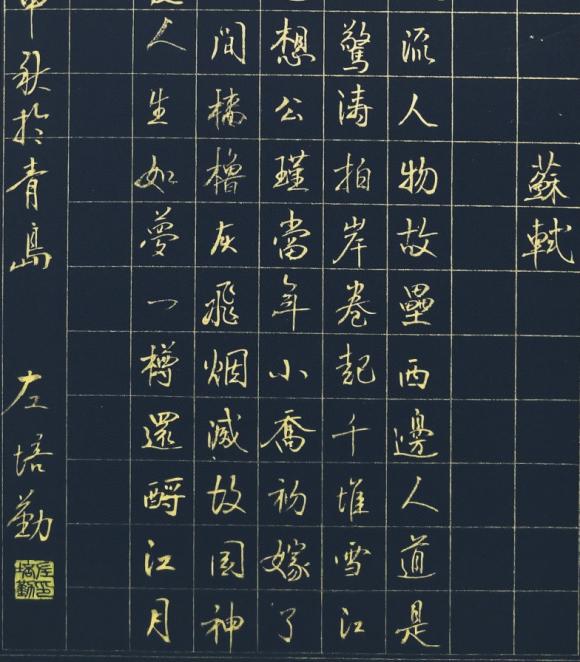 蘇軾
流人物故壘西邊人道是
驚涛拍岸卷起千堆雪江
想公瑾當年小喬初嫁了
间檣櫓灰飛烟滅故国神
人生如夢一樽還酹江月
秋於青島 左培勤
左印培勤